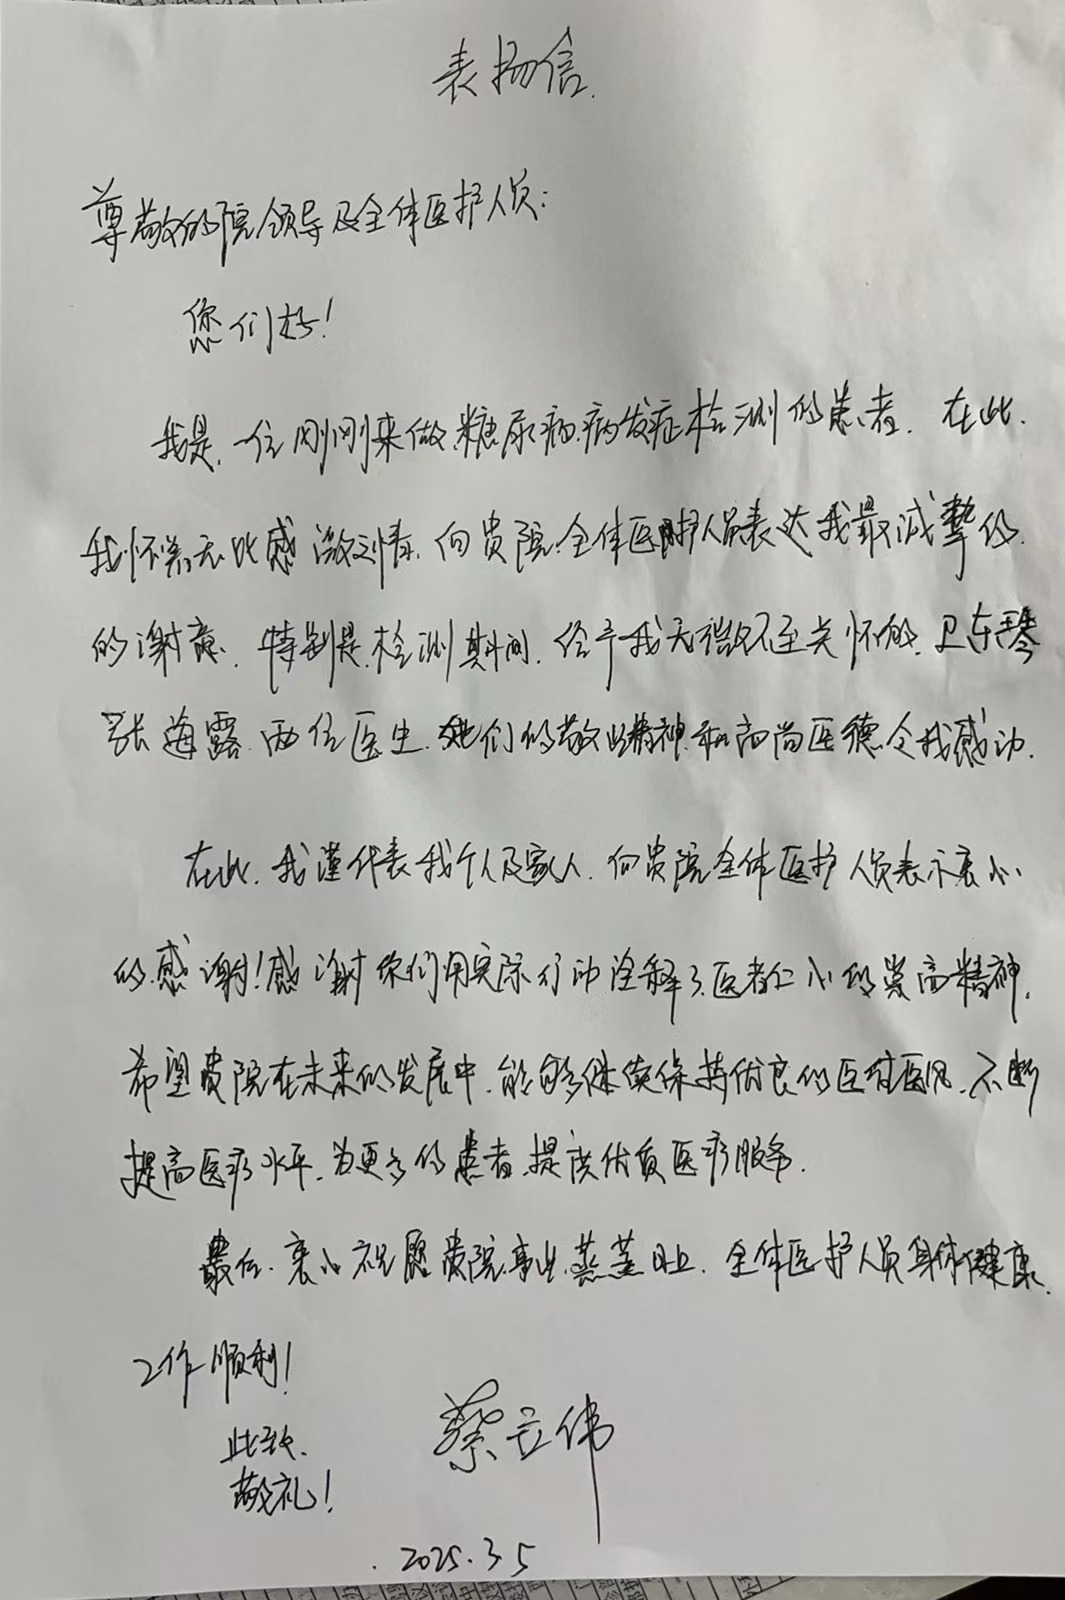 表扬信.
尊敬的院领导及全体医护人员:
您们好!
我是一位刚刚来做糖尿病病发症检测的患者. 在此.
我怀着无比感激之情. 向贵院全体医护人员表达我最诚挚的.
的谢意. 特别是检测期间. 给予我无微不至关怀的. 卫东琴
张海露 两位医生. 她们的敬业精神和高尚医德令我感动.
在此. 我谨代表我个人及家人. 向贵院全体医护人员表示衷心
的感谢!感谢你们用实际行动诠释了医者仁心的崇高精神.
希望贵院在未来的发展中. 能够继续保持优良的医德医风. 不断
提高医疗水平. 为更多的患者提供优质医疗服务.
最后. 衷心祝愿贵院事业蒸蒸日上. 全体医护人员身体健康.
工作顺利!
此致.
敬礼!
蔡立伟
2025.3.5